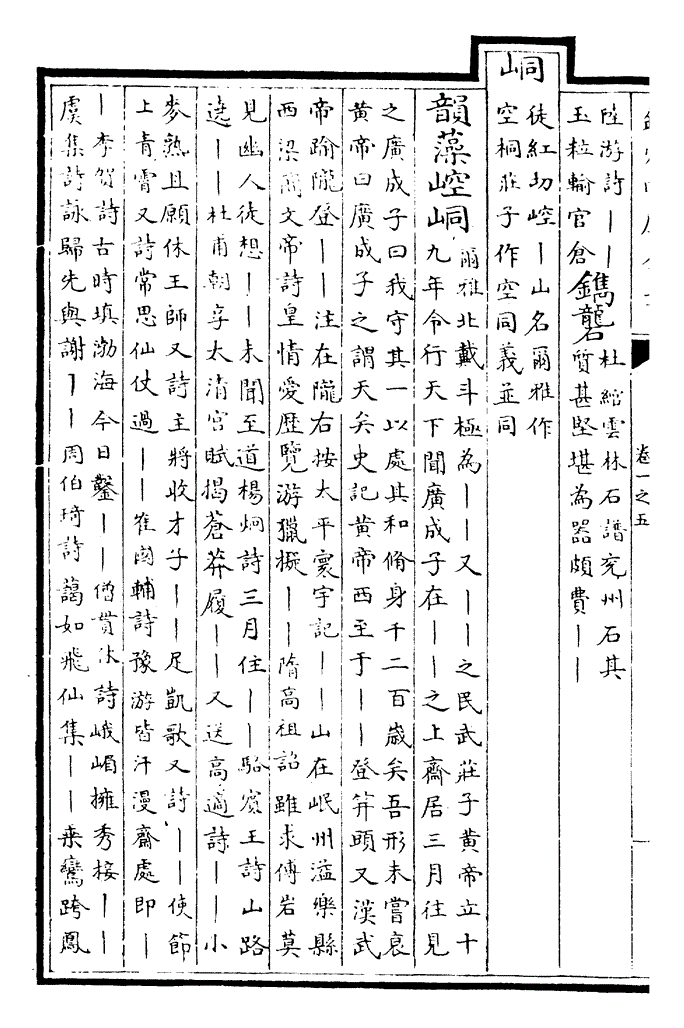 卷一之五
陸游詩――
玉粒輸官倉
鐫礱
杜綰雲林石譜兖州石其
質甚堅堪為器頗費――
峒
徒紅切崆―山名爾雅作
空桐莊子作空同義並同
韻藻崆峒
爾雅北戴斗極為――又――之民武莊子黄帝立十
九年令行天下聞廣成子在――之上齋居三月往見
之廣成子曰我守其一以處其和脩身千二百歲矣吾形未嘗衰
黄帝曰廣成子之謂天矣史記黄帝西至于――登笄頭又漢武
帝踰隴登――注在隴右按太平寰宇記――山在岷州溢樂縣
西梁簡文帝詩皇情愛歷覽游獵擬――隋高祖詔雖求傅岩莫
見幽人徒想――未聞至道楊炯詩三月住――駱賓王詩山路
遶――杜甫朝享太清宫賦揭蒼莽履――又送高適詩――小
麥熟且願休王師又詩主將收才子――足凱歌又詩――使節
上青霄又詩常思仙仗過――崔國輔詩豫游皆汗漫齋處即―
―李賀詩古時填渤海今日鑿――僧貫休詩峨嵋擁秀接――
虞集詩詠歸先與謝――周伯琦詩藹如飛仙集――乘鸞跨鳳